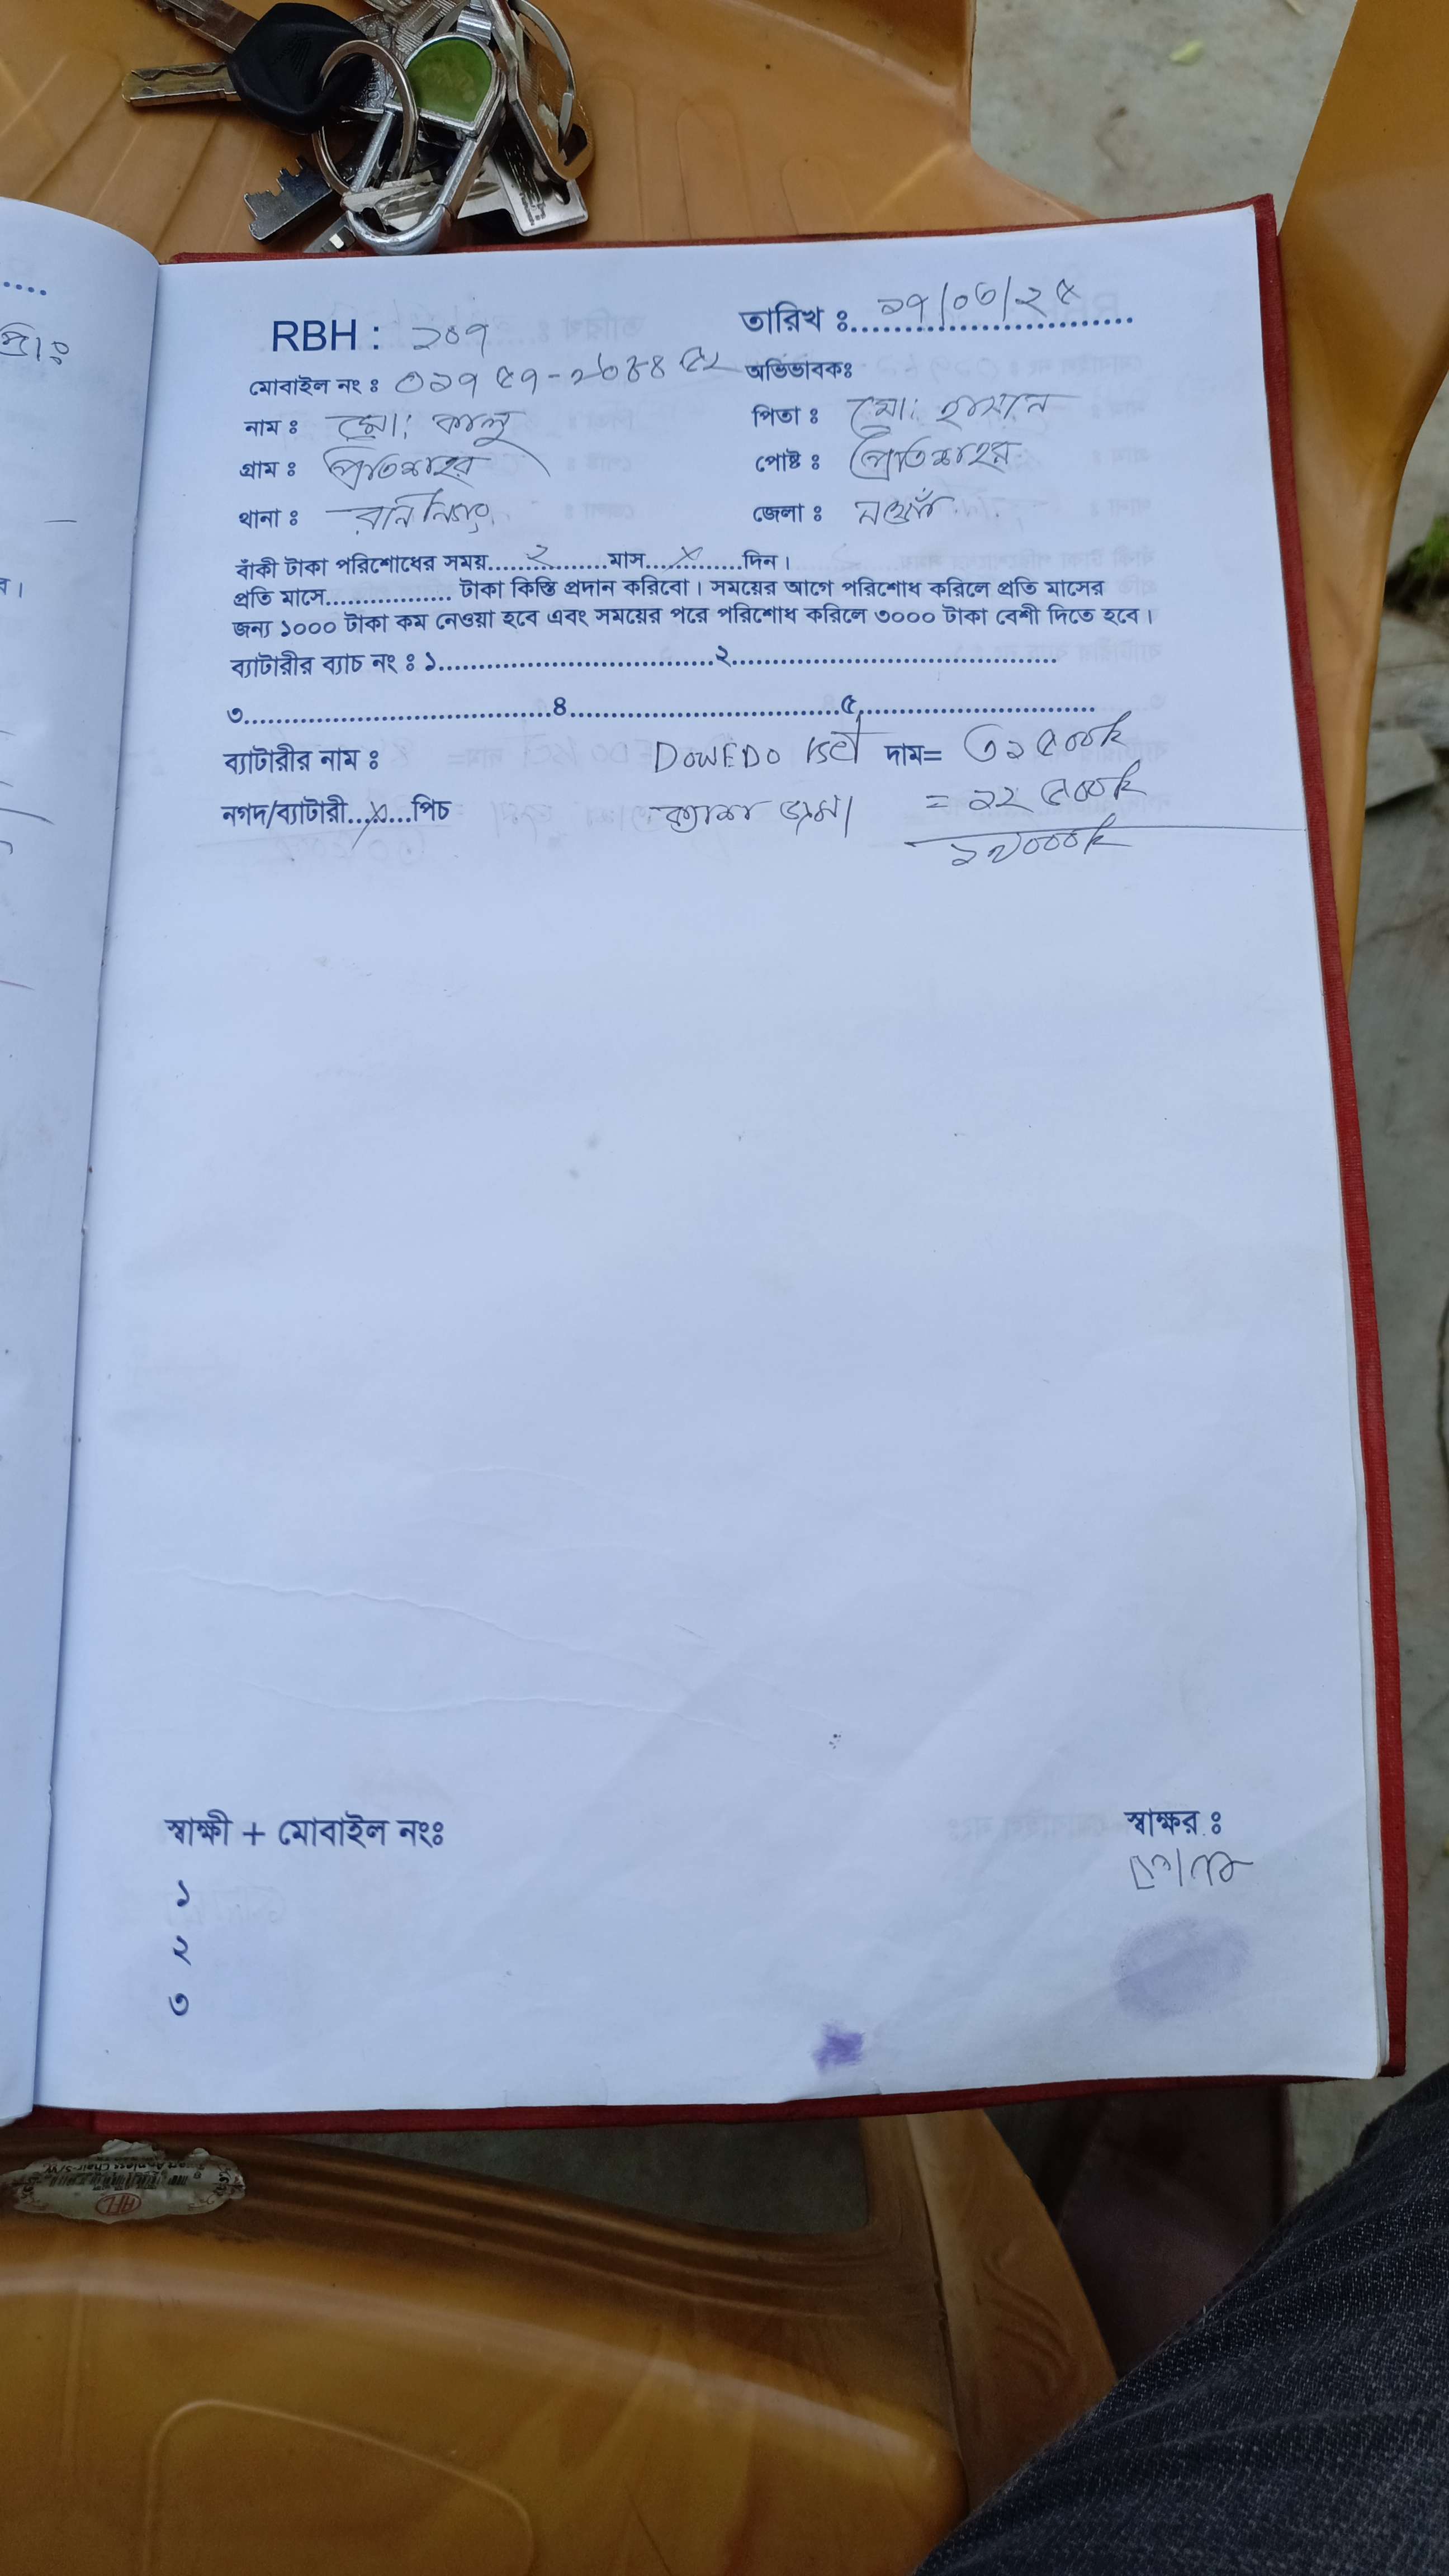 RBH : ২০৭
তারিখ ঃ ১৭/০৩/২৫
মোবাইল নং ঃ
অভিভাবকঃ
নাম ঃ মো: কালু
পিতা ঃ মো:
গ্রাম ঃ
পোষ্ট ঃ
থানা ঃ
জেলা ঃ নওগাঁ
বাঁকী টাকা পরিশোধের সময়........২........মাস....x......দিন।
প্রতি মাসে................ টাকা কিস্তি প্রদান করিবো। সময়ের আগে পরিশোধ করিলে প্রতি মাসের
জন্য ১০০০ টাকা কম নেওয়া হবে এবং সময়ের পরে পরিশোধ করিলে ৩০০০ টাকা বেশী দিতে হবে।
ব্যাটারীর ব্যাচ নং ঃ ১....................................২..........................................
৩........................................৪...................................৫..............................
ব্যাটারীর নাম ঃ DOWEDO দাম= ৩১৫০০৳
নগদ/ব্যাটারী...x...পিচ ক্যাশ জমা = ১২৫০০৳
১৯০০০৳
স্বাক্ষী + মোবাইল নংঃ
স্বাক্ষর ঃ
১
২
৩